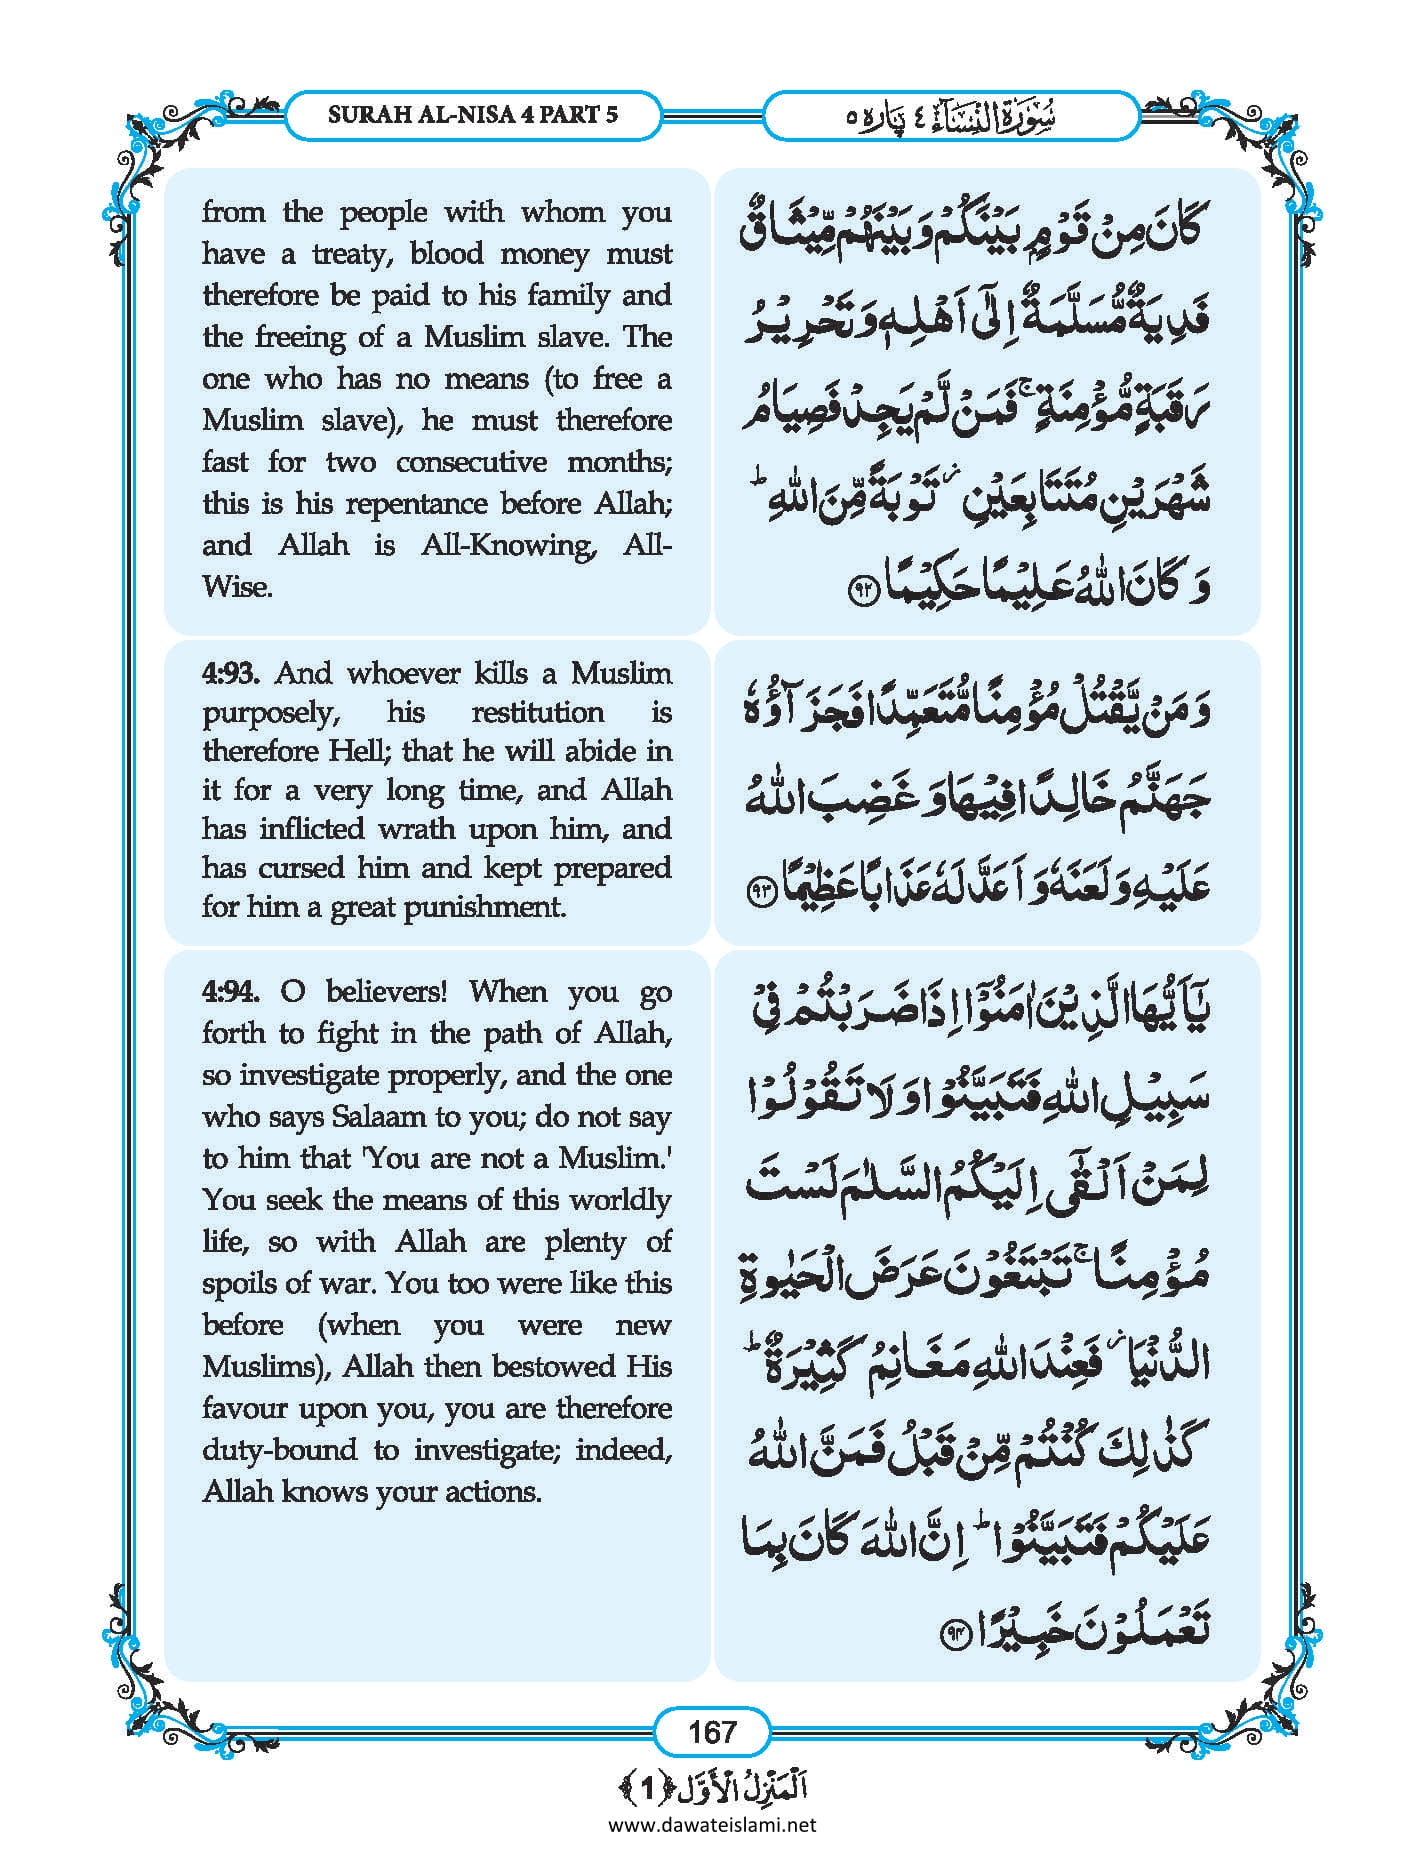 SURAH AL-NISA 4 PART 5
سُوْرَةُ النِّسَآء ٤ پَارہ ٥
from the people with whom you
have a treaty, blood money must
therefore be paid to his family and
the freeing of a Muslim slave. The
one who has no means (to free a
Muslim slave), he must therefore
fast for two consecutive months;
this is his repentance before Allah;
and Allah is All-Knowing, All-
Wise.
كَانَ مِنْ قَوْمٍۭ بَيْنَكُمْ وَبَيْنَهُمْ مِّيْثَاقٌ
فَدِيَةٌ مُّسَلَّمَةٌ اِلٰۤى اَهْلِهٖ وَتَحْرِيْرُ
رَقَبَةٍ مُّؤْمِنَةٍ ۚ فَمَنْ لَّمْ يَجِدْ فَصِيَامُ
شَهْرَيْنِ مُتَتَابِعَيْنِ ؗ تَوْبَةً مِّنَ اللّٰهِ ؕ
وَكَانَ اللّٰهُ عَلِيْمًا حَكِيْمًا ﴿۹۲﴾
4:93. And whoever kills a Muslim
purposely, his restitution is
therefore Hell; that he will abide in
it for a very long time, and Allah
has inflicted wrath upon him, and
has cursed him and kept prepared
for him a great punishment.
وَمَنْ يَّقْتُلْ مُؤْمِنًا مُّتَعَمِّدًا فَجَزَآؤُهٗ
جَهَنَّمُ خَالِدًا فِيْهَا وَغَضِبَ اللّٰهُ
عَلَيْهِ وَلَعَنَهٗ وَاَعَدَّ لَهٗ عَذَابًا عَظِيْمًا ﴿۹۳﴾
4:94. O believers! When you go
forth to fight in the path of Allah,
so investigate properly, and the one
who says Salaam to you; do not say
to him that 'You are not a Muslim.'
You seek the means of this worldly
life, so with Allah are plenty of
spoils of war. You too were like this
before (when you were new
Muslims), Allah then bestowed His
favour upon you, you are therefore
duty-bound to investigate; indeed,
Allah knows your actions.
يٰۤاَيُّهَا الَّذِيْنَ اٰمَنُوْۤا اِذَا ضَرَبْتُمْ فِيْ
سَبِيْلِ اللّٰهِ فَتَبَيَّنُوْا وَلَا تَقُوْلُوْا
لِمَنْ اَلْقٰۤى اِلَيْكُمُ السَّلٰمَ لَسْتَ
مُؤْمِنًا ۚ تَبْتَغُوْنَ عَرَضَ الْحَيٰوةِ
الدُّنْيَا ؗ فَعِنْدَ اللّٰهِ مَغَانِمُ كَثِيْرَةٌ ؕ
كَذٰلِكَ كُنْتُمْ مِّنْ قَبْلُ فَمَنَّ اللّٰهُ
عَلَيْكُمْ فَتَبَيَّنُوْا ؕ اِنَّ اللّٰهَ كَانَ بِمَا
تَعْمَلُوْنَ خَبِيْرًا ﴿۹۴﴾
167
اَلْمَنْزِلُ الْاَوَّل ﴿1﴾
www.dawateislami.net